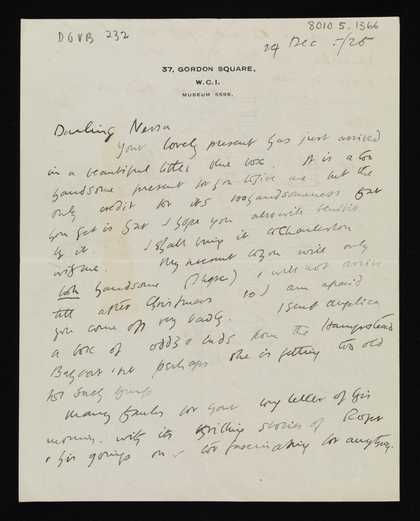 DGVB 232
8010 5. 1366
24 Dec 5/25
37, GORDON SQUARE,
W.C.1.
MUSEUM 5596.
Darling Nessa
Your lovely present has just arrived
in a beautiful little blue box. It is a too
handsome present for you to give me but the
only credit for its handsomeness that
you get is that I hope you also will benefit
by it I shall bring it to Charleston
with me. My present to you will only
look handsome (I hope) & will not arrive
till after Christmas so I am afraid
you come off very badly. I sent Angelica
a box of odds & ends from the Hampstead
Bazaar but perhaps she is getting too old
for such things
Many thanks for your long letter of this
morning with its thrilling stories of Roger
& his goings on - too fascinating for anything.